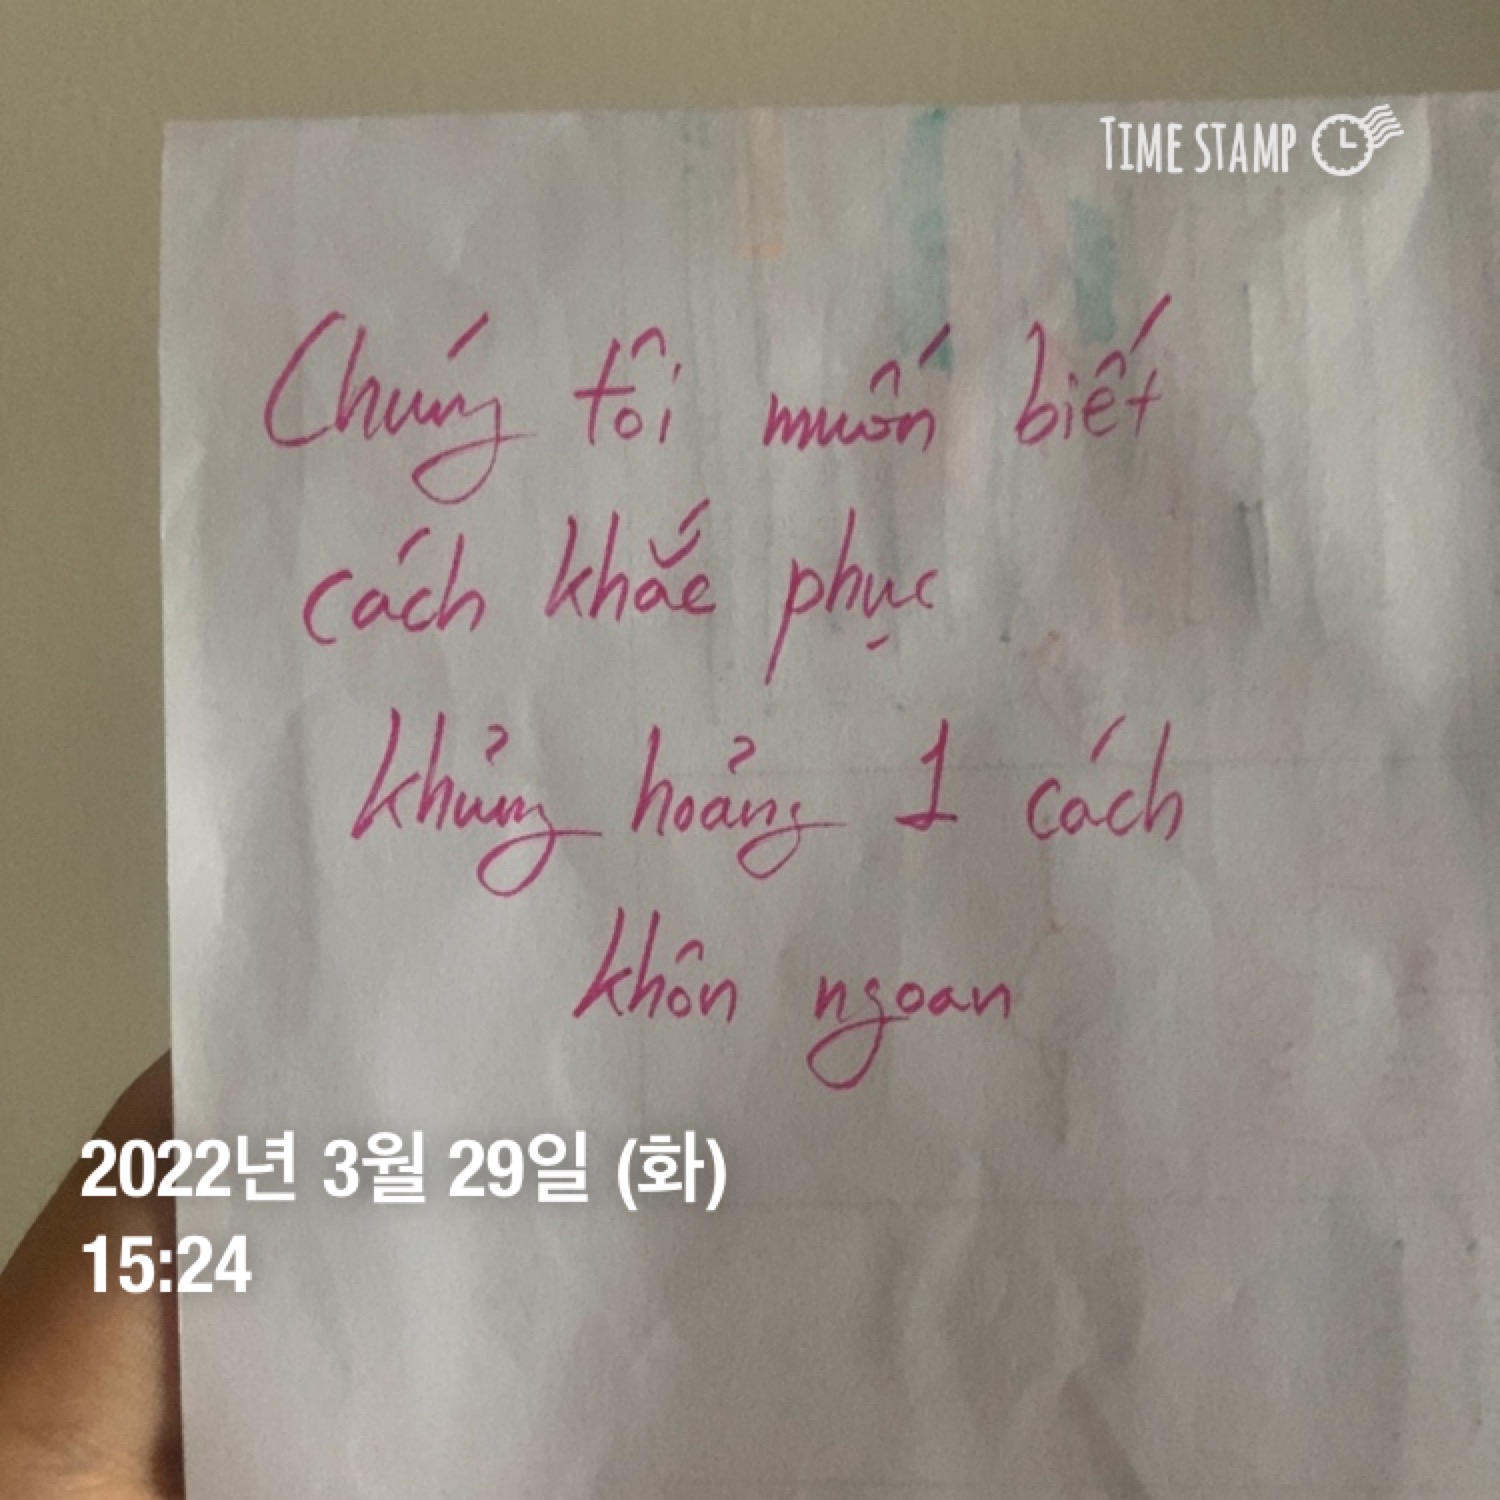 TIME STAMP
Chúng tôi muốn biết
cách khắc phục
khủng hoảng 1 cách
khôn ngoan
2022년 3월 29일 (화)
15:24